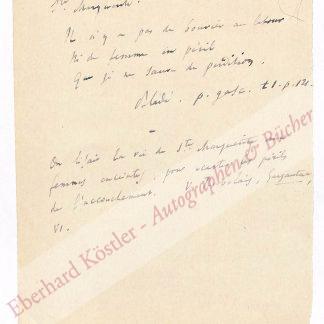 Ste Marguerite.
Il n'y a pas de bouvier au labour
Ni de femme en péril
Que je ne sauve de perdition.
p. gasc. t 1. p. 121.
On lisait la vie de Ste Marguerite aux
femmes enceintes, pour écarter les périls
de l'accouchement. Gargantua,
VI.
Eberhard Köstler - Autographen & Bücher